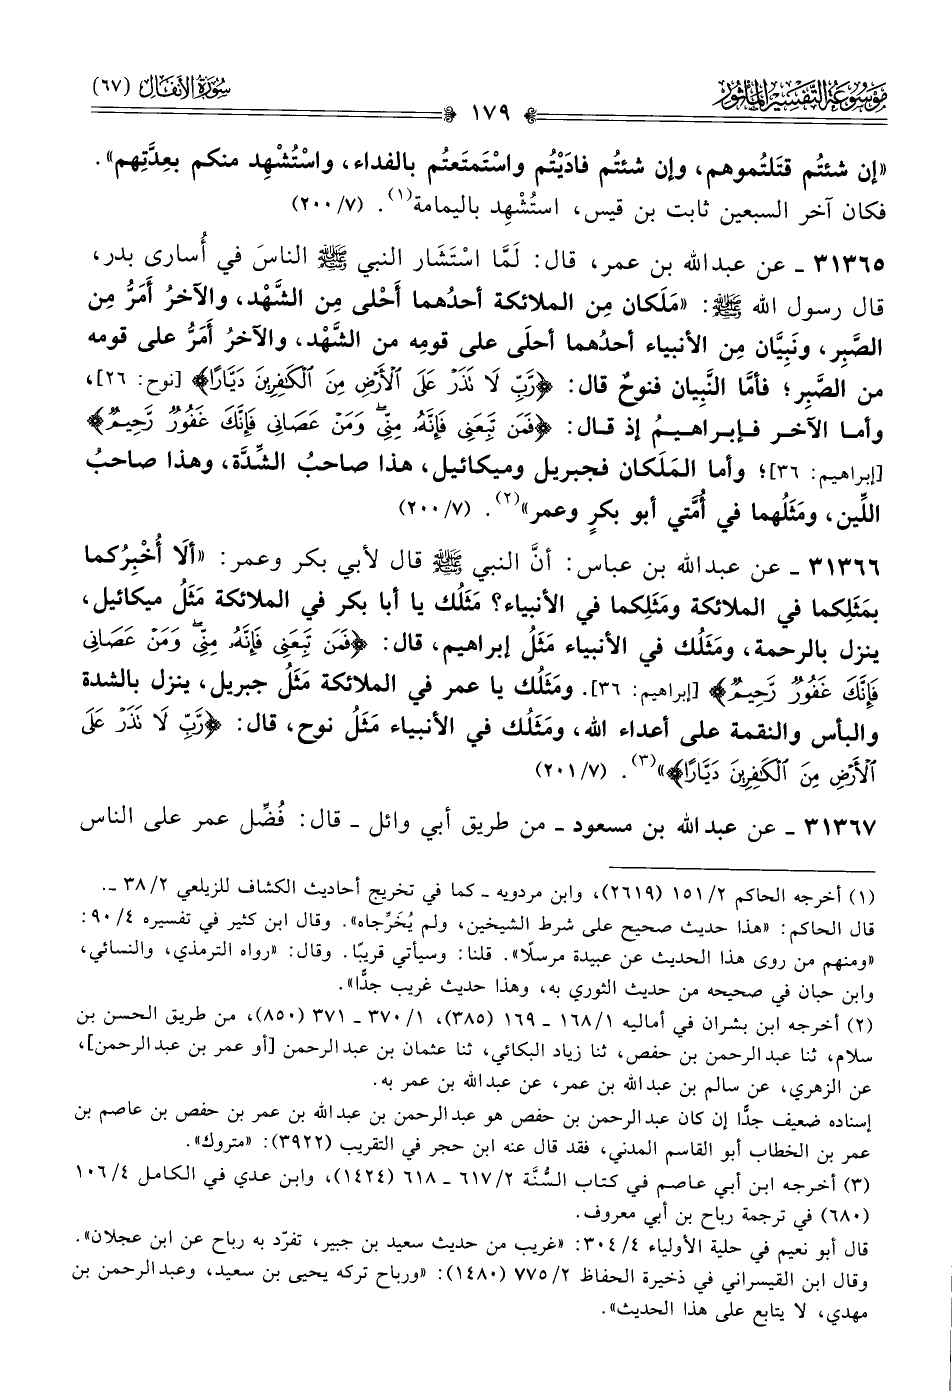 موسوعة التفسير المأثور
١٧٩
سورة الأنفال (٦٧)
«إن شئتُم قتَلتُموهم، وإن شئتُم فادَيْتُم واسْتَمتَعتُم بالفداء، واسْتُشْهِد منكم بعِدَّتِهم».
فكان آخر السبعين ثابت بن قيس، استُشْهِد باليمامة(١). (٧/ ٢٠٠)
٣١٣٦٥ ـ عن عبدالله بن عمر، قال: لَمَّا اسْتَشَار النبي ﷺ الناسَ في أُسارى بدر،
قال رسول الله ﷺ: «مَلَكان مِن الملائكة أحدُهما أَحْلى مِن الشَّهْد، والآخرُ أمَرُّ مِن
الصَّبِر، ونَبِيَّان مِن الأنبياء أحدُهما أحلَى على قومِه من الشَّهْد، والآخرُ أَمَرُّ على قومه
من الصَّبِر؛ فأمَّا النَّبِيان فنوحٌ قال: ﴿رَّبِّ لَا نَذَرْ عَلَى ٱلْأَرْضِ مِنَ ٱلْكَٰفِرِينَ دَيَّارًا﴾ [نوح: ٢٦]،
وأما الآخر فإبراهيمُ إذ قال: ﴿فَمَن تَبِعَنِى فَإِنَّهُۥ مِنِّىۖ وَمَنْ عَصَانِى فَإِنَّكَ غَفُورٌ رَّحِيمٌ﴾
[إبراهيم: ٣٦]؛ وأما المَلَكان فجبريل وميكائيل، هذا صاحبُ الشِّدَّة، وهذا صاحبُ
اللِّين، ومَثَلُهما في أُمَّتي أبو بكرٍ وعمر»(٢). (٧/ ٢٠٠)
٣١٣٦٦ ـ عن عبدالله بن عباس: أنَّ النبي ﷺ قال لأبي بكر وعمر: «ألَا أُخْبِرُكما
بمَثَلِكما في الملائكة ومَثَلِكما في الأنبياء؟ مَثَلُك يا أبا بكر في الملائكة مَثَلُ ميكائيل،
ينزل بالرحمة، ومَثَلُك في الأنبياء مَثَلُ إبراهيم، قال: ﴿فَمَن تَبِعَنِى فَإِنَّهُۥ مِنِّىۖ وَمَنْ عَصَانِى
فَإِنَّكَ غَفُورٌ رَّحِيمٌ﴾ [إبراهيم: ٣٦]. ومَثَلُك يا عمر في الملائكة مَثَلُ جبريل، ينزل بالشدة
والبأس والنقمة على أعداء الله، ومَثَلُك في الأنبياء مَثَلُ نوح، قال: ﴿رَّبِّ لَا نَذَرْ عَلَى
ٱلْأَرْضِ مِنَ ٱلْكَٰفِرِينَ دَيَّارًا﴾»(٣). (٧/ ٢٠١)
٣١٣٦٧ ـ عن عبدالله بن مسعود ـ من طريق أبي وائل ـ قال: فُضِّل عمر على الناس
(١) أخرجه الحاكم ٢/ ١٥١ (٢٦١٩)، وابن مردويه ـ كما في تخريج أحاديث الكشاف للزيلعي ٢/ ٣٨ ـ.
قال الحاكم: «هذا حديث صحيح على شرط الشيخين، ولم يُخَرِّجاه». وقال ابن كثير في تفسيره ٤/ ٩٠:
«ومنهم من روى هذا الحديث عن عبيدة مرسلًا». قلنا: وسيأتي قريبًا. وقال: «رواه الترمذي، والنسائي،
وابن حبان في صحيحه من حديث الثوري به، وهذا حديث غريب جدًّا».
(٢) أخرجه ابن بشران في أماليه ١/ ١٦٨ ـ ١٦٩ (٣٨٥)، ١/ ٣٧٠ ـ ٣٧١ (٨٥٠)، من طريق الحسن بن
سلام، ثنا عبدالرحمن بن حفص، ثنا زياد البكائي، ثنا عثمان بن عبدالرحمن [أو عمر بن عبدالرحمن]،
عن الزهري، عن سالم بن عبدالله بن عمر، عن عبدالله بن عمر به.
إسناده ضعيف جدًّا إن كان عبدالرحمن بن حفص هو عبدالرحمن بن عبدالله بن عمر بن حفص بن عاصم بن
عمر بن الخطاب أبو القاسم المدني، فقد قال عنه ابن حجر في التقريب (٣٩٢٢): «متروك».
(٣) أخرجه ابن أبي عاصم في كتاب السُّنَّة ٢/ ٦١٧ ـ ٦١٨ (١٤٢٤)، وابن عدي في الكامل ٤/ ١٠٦
(٦٨٠) في ترجمة رباح بن أبي معروف.
قال أبو نعيم في حلية الأولياء ٤/ ٣٠٤: «غريب من حديث سعيد بن جبير، تفرّد به رباح عن ابن عجلان».
وقال ابن القيسراني في ذخيرة الحفاظ ٢/ ٧٧٥ (١٤٨٠): «ورباح تركه يحيى بن سعيد، وعبدالرحمن بن
مهدي، لا يتابع على هذا الحديث».